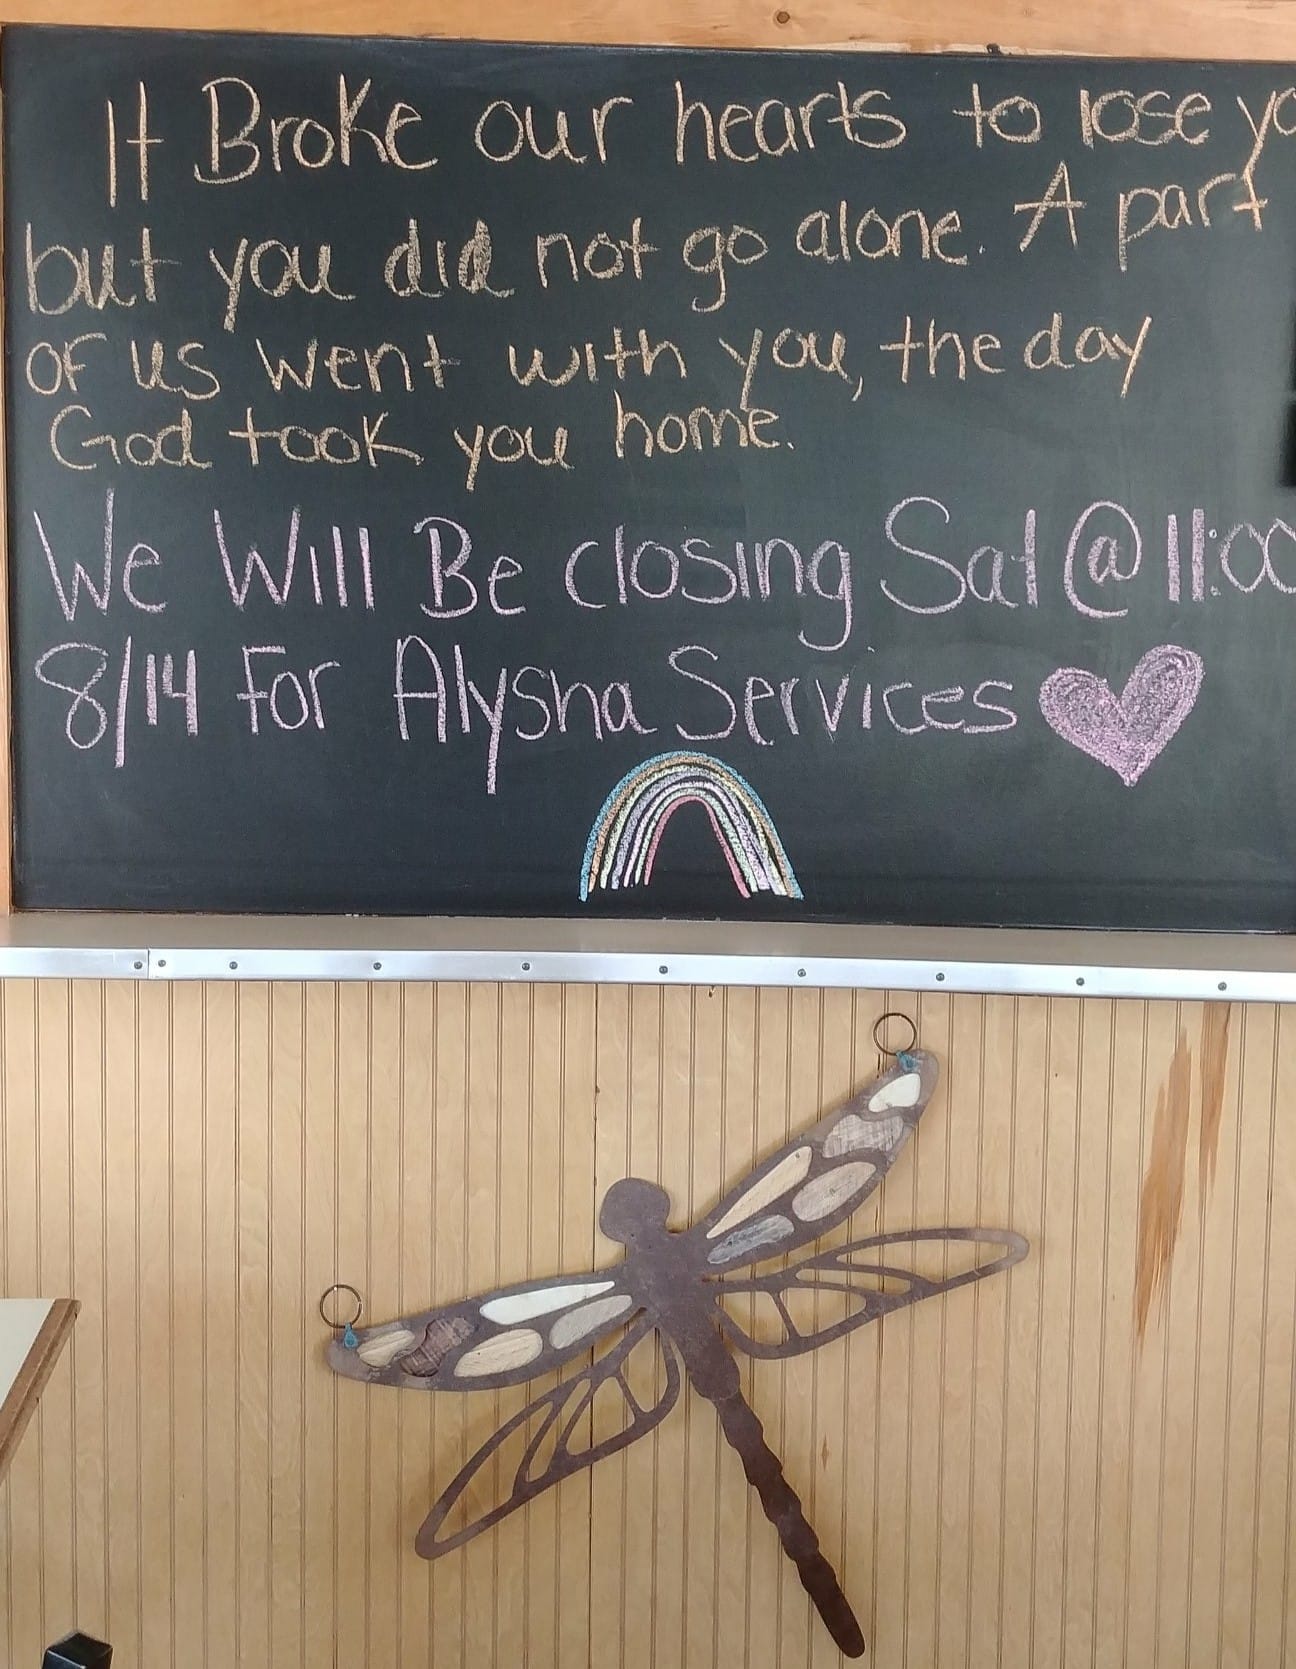 It Broke our hearts to lose yo
but you did not go alone. A part
of us went with you, the day
God took you home.
We Will Be closing Sat @ 11:00
8/14 For Alysha Services